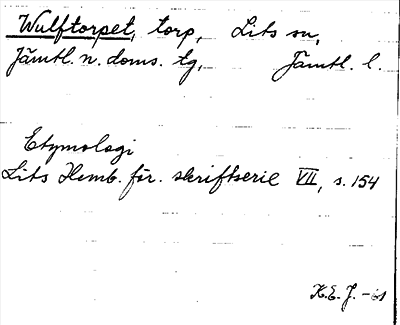 Wulftorpet, torp, Lits sn,
Jämtl. n. doms. tg, Jämtl. l.
Etymologi
Lits Hemb. för. skriftserie VII, s. 154
K.E. J. -61